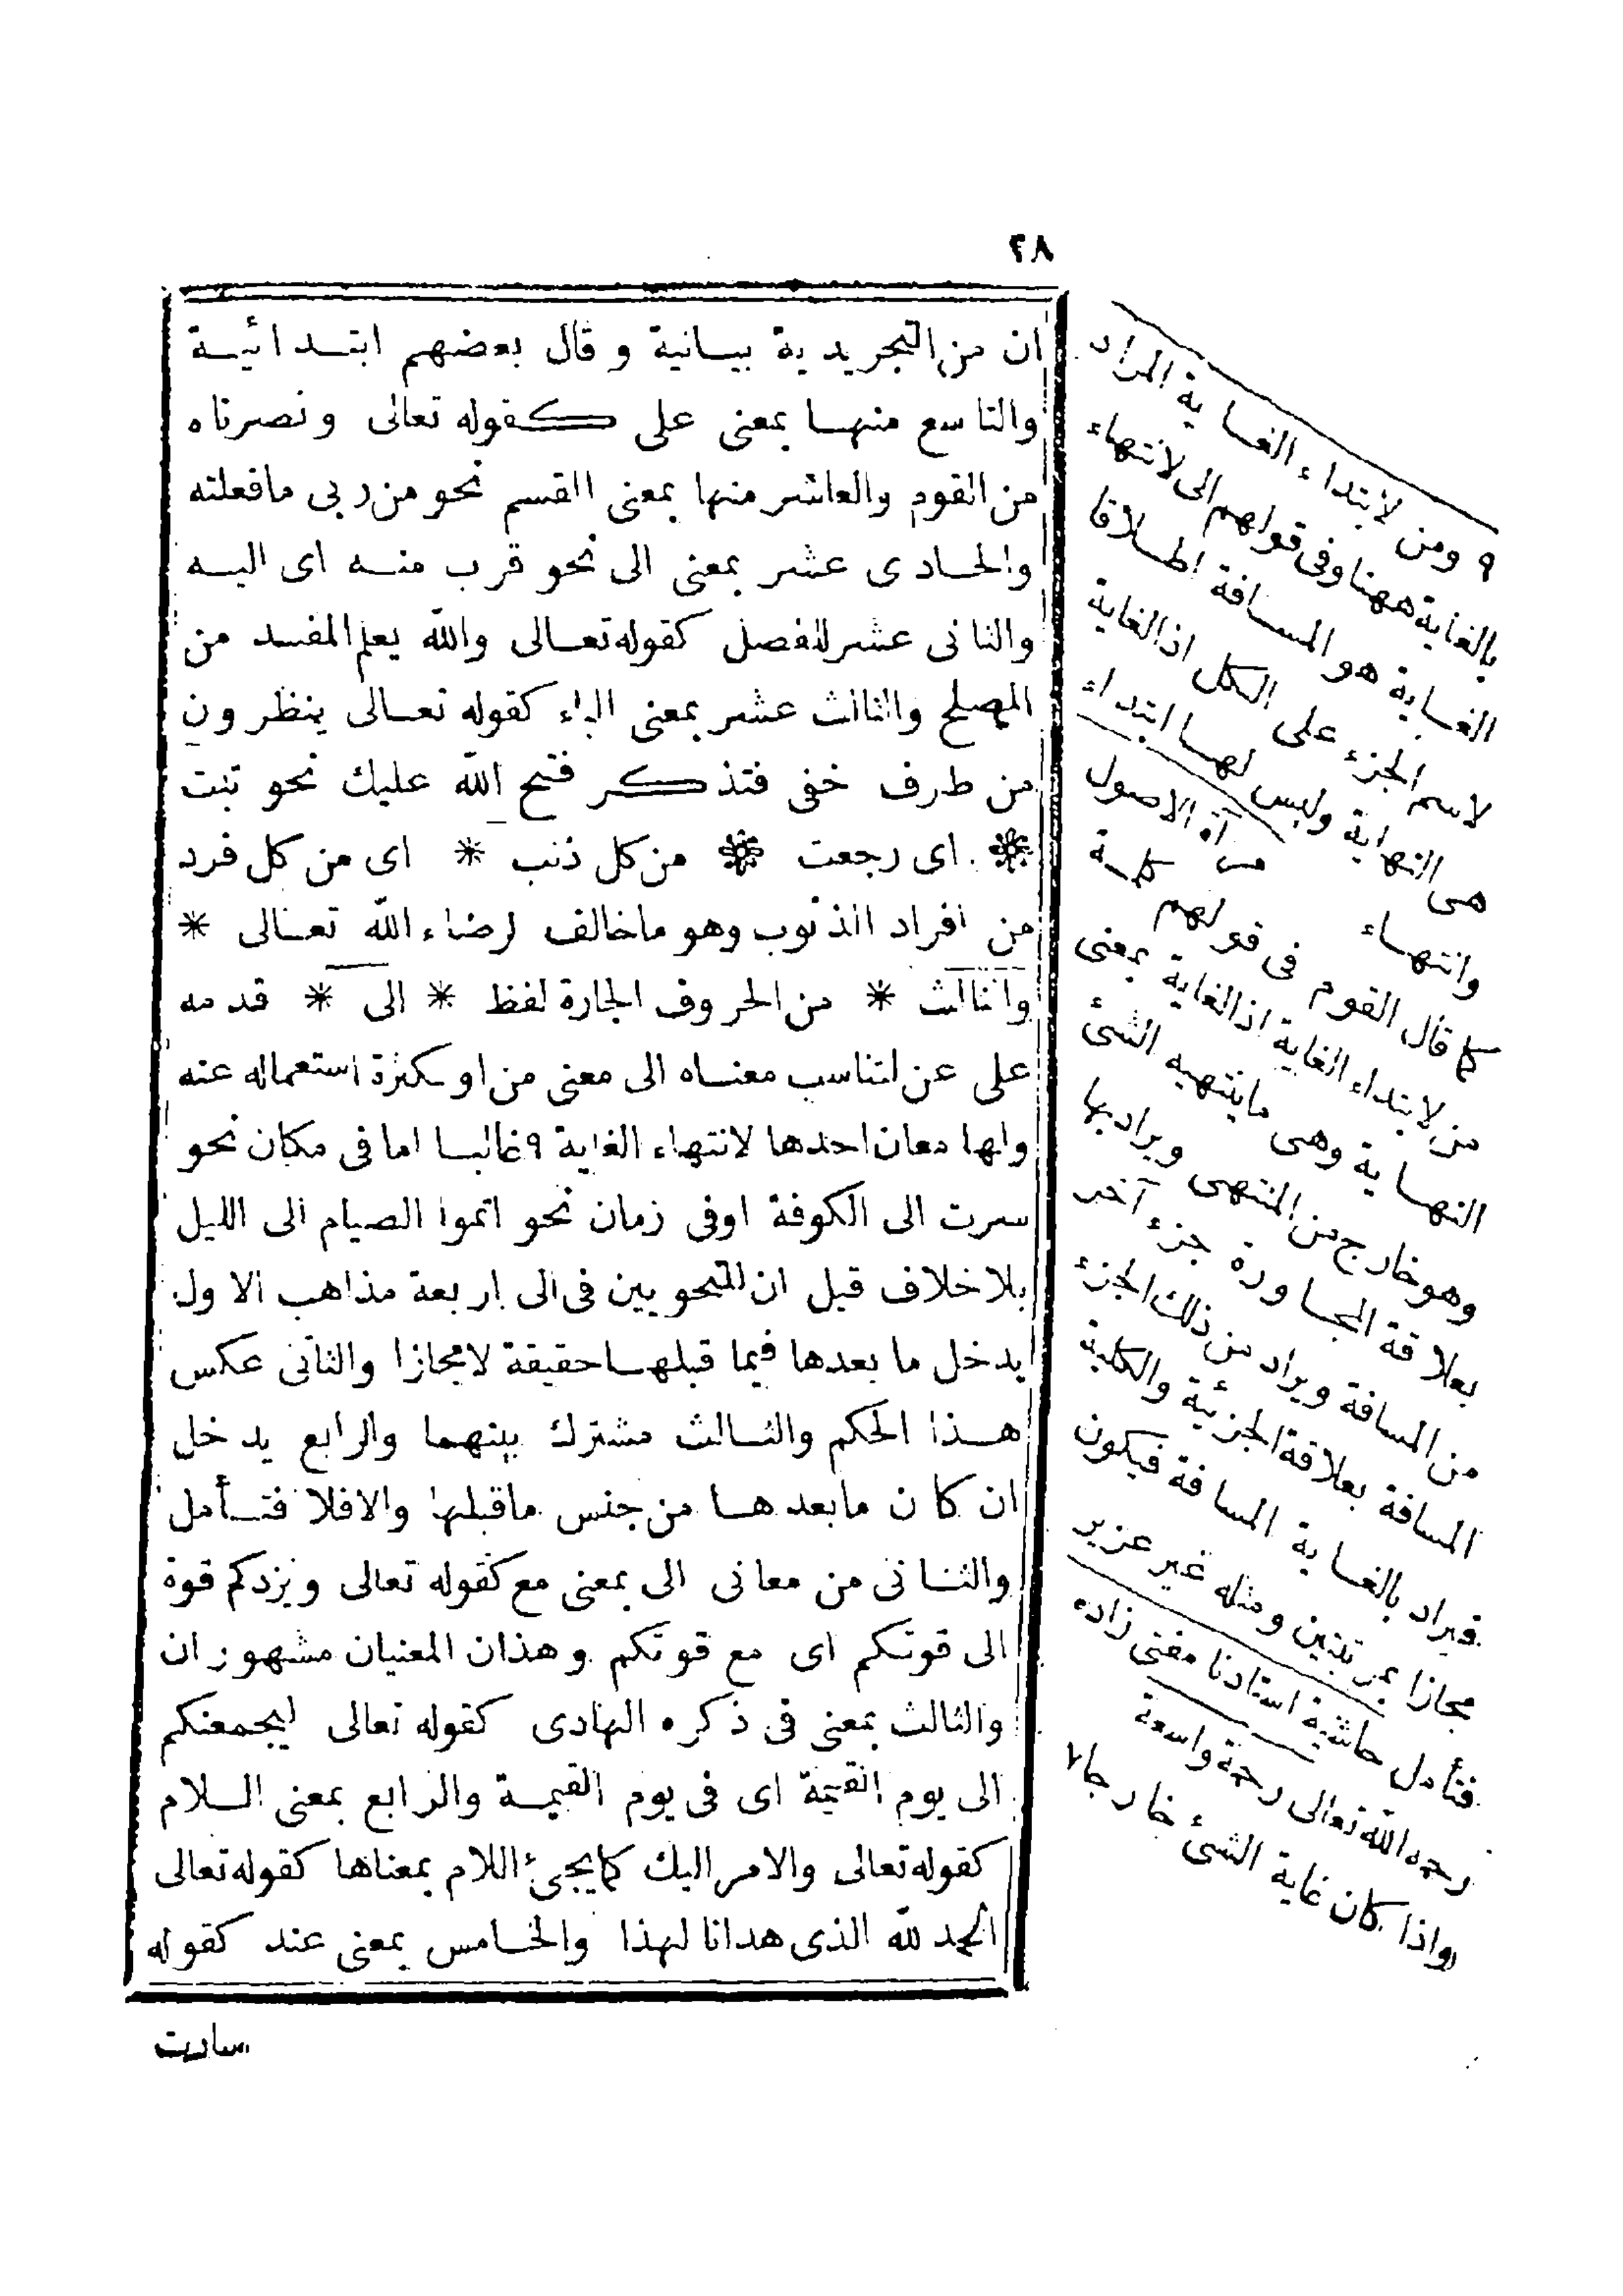 ٢٨
ان من التجريدية بيانية وقال بعضهم ابتدائية
والتاسع منها بمعنى على كقوله تعالى ونصرناه
من القوم والعاشر منها بمعنى القسم نحو من ربى مافعلته
والحادى عشر بمعنى الى نحو قرب منه اى اليه
والثانى عشر للفصل كقوله تعالى والله يعلم المفسد من
المصلح والثالث عشر بمعنى الباء كقوله تعالى ينظرون
من طرف خفى فتذكر فتح الله عليك نحو تبت
* اى رجعت * من كل ذنب * اى من كل فرد
من افراد الذنوب وهو ماخالف لرضاء الله تعالى *
والثالث * من الحروف الجارة لفظ * الى * قدمه
على عن لتناسب معناه الى معنى من او كثرة استعماله عنه
ولها معان احدها لانتهاء الغاية ٩ غالبا اما فى مكان نحو
سرت الى الكوفة اوفى زمان نحو اتموا الصيام الى الليل
بلاخلاف قيل ان للنحويين فى الى اربعة مذاهب الاول
يدخل ما بعدها فيما قبلها حقيقة لامجازا والثانى عكس
هذا الحكم والثالث مشترك بينهما والرابع يدخل
ان كان مابعدها من جنس ماقبلها والافلا فتأمل
والثانى من معانى الى بمعنى مع كقوله تعالى ويزدكم قوة
الى قوتكم اى مع قوتكم وهذان المعنيان مشهوران
والثالث بمعنى فى ذكره الهادى كقوله تعالى ليجمعنكم
الى يوم القيمة اى فى يوم القيمة والرابع بمعنى اللام
كقوله تعالى والامر اليك كمايجئ اللام بمعناها كقوله تعالى
الحمد لله الذى هدانا لهذا والخامس بمعنى عند كقوله
٩ ومن لابتداء الغاية المراد
بالغاية ههنا وفى قولهم الى لانتهاء
الغاية هو المسافة اطلاقا
لاسم الجزء على الكل اذ الغاية
هى النهاية وليس لها ابتداء
وانتهاء مرآة الاصول
كما قال القوم فى قولهم كلمة
من لابتداء الغاية اذ الغاية بمعنى
النهاية وهى ماينتهيه الشئ
وهو خارج من المنتهى ويراد بها
بعلاقة المجاورة جزء آخر
من المسافة ويراد من ذلك الجزء
المسافة بعلاقة الجزئية والكلية
فيراد بالغاية المسافة فيكون
مجازا بمرتبتين ومثله غير عزيز
فتأمل حاشية استادنا مفتى زاده
رحمه الله تعالى رحمة واسعة
واذا كان غاية الشئ خارجا